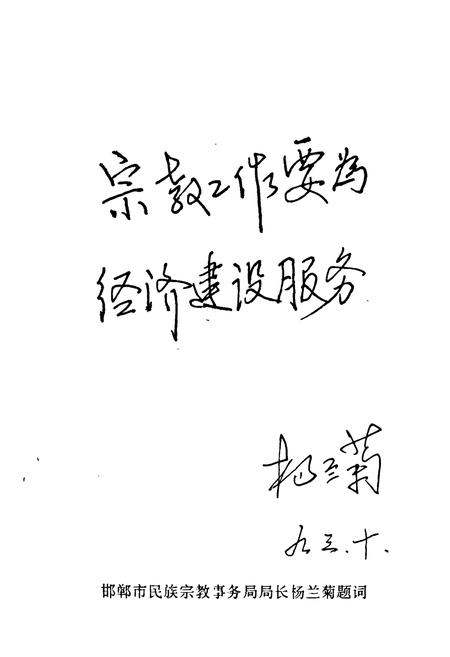 宗教工作要为
经济建设服务
杨兰菊
九三.十.
邯郸市民族宗教事务局局长杨兰菊题词